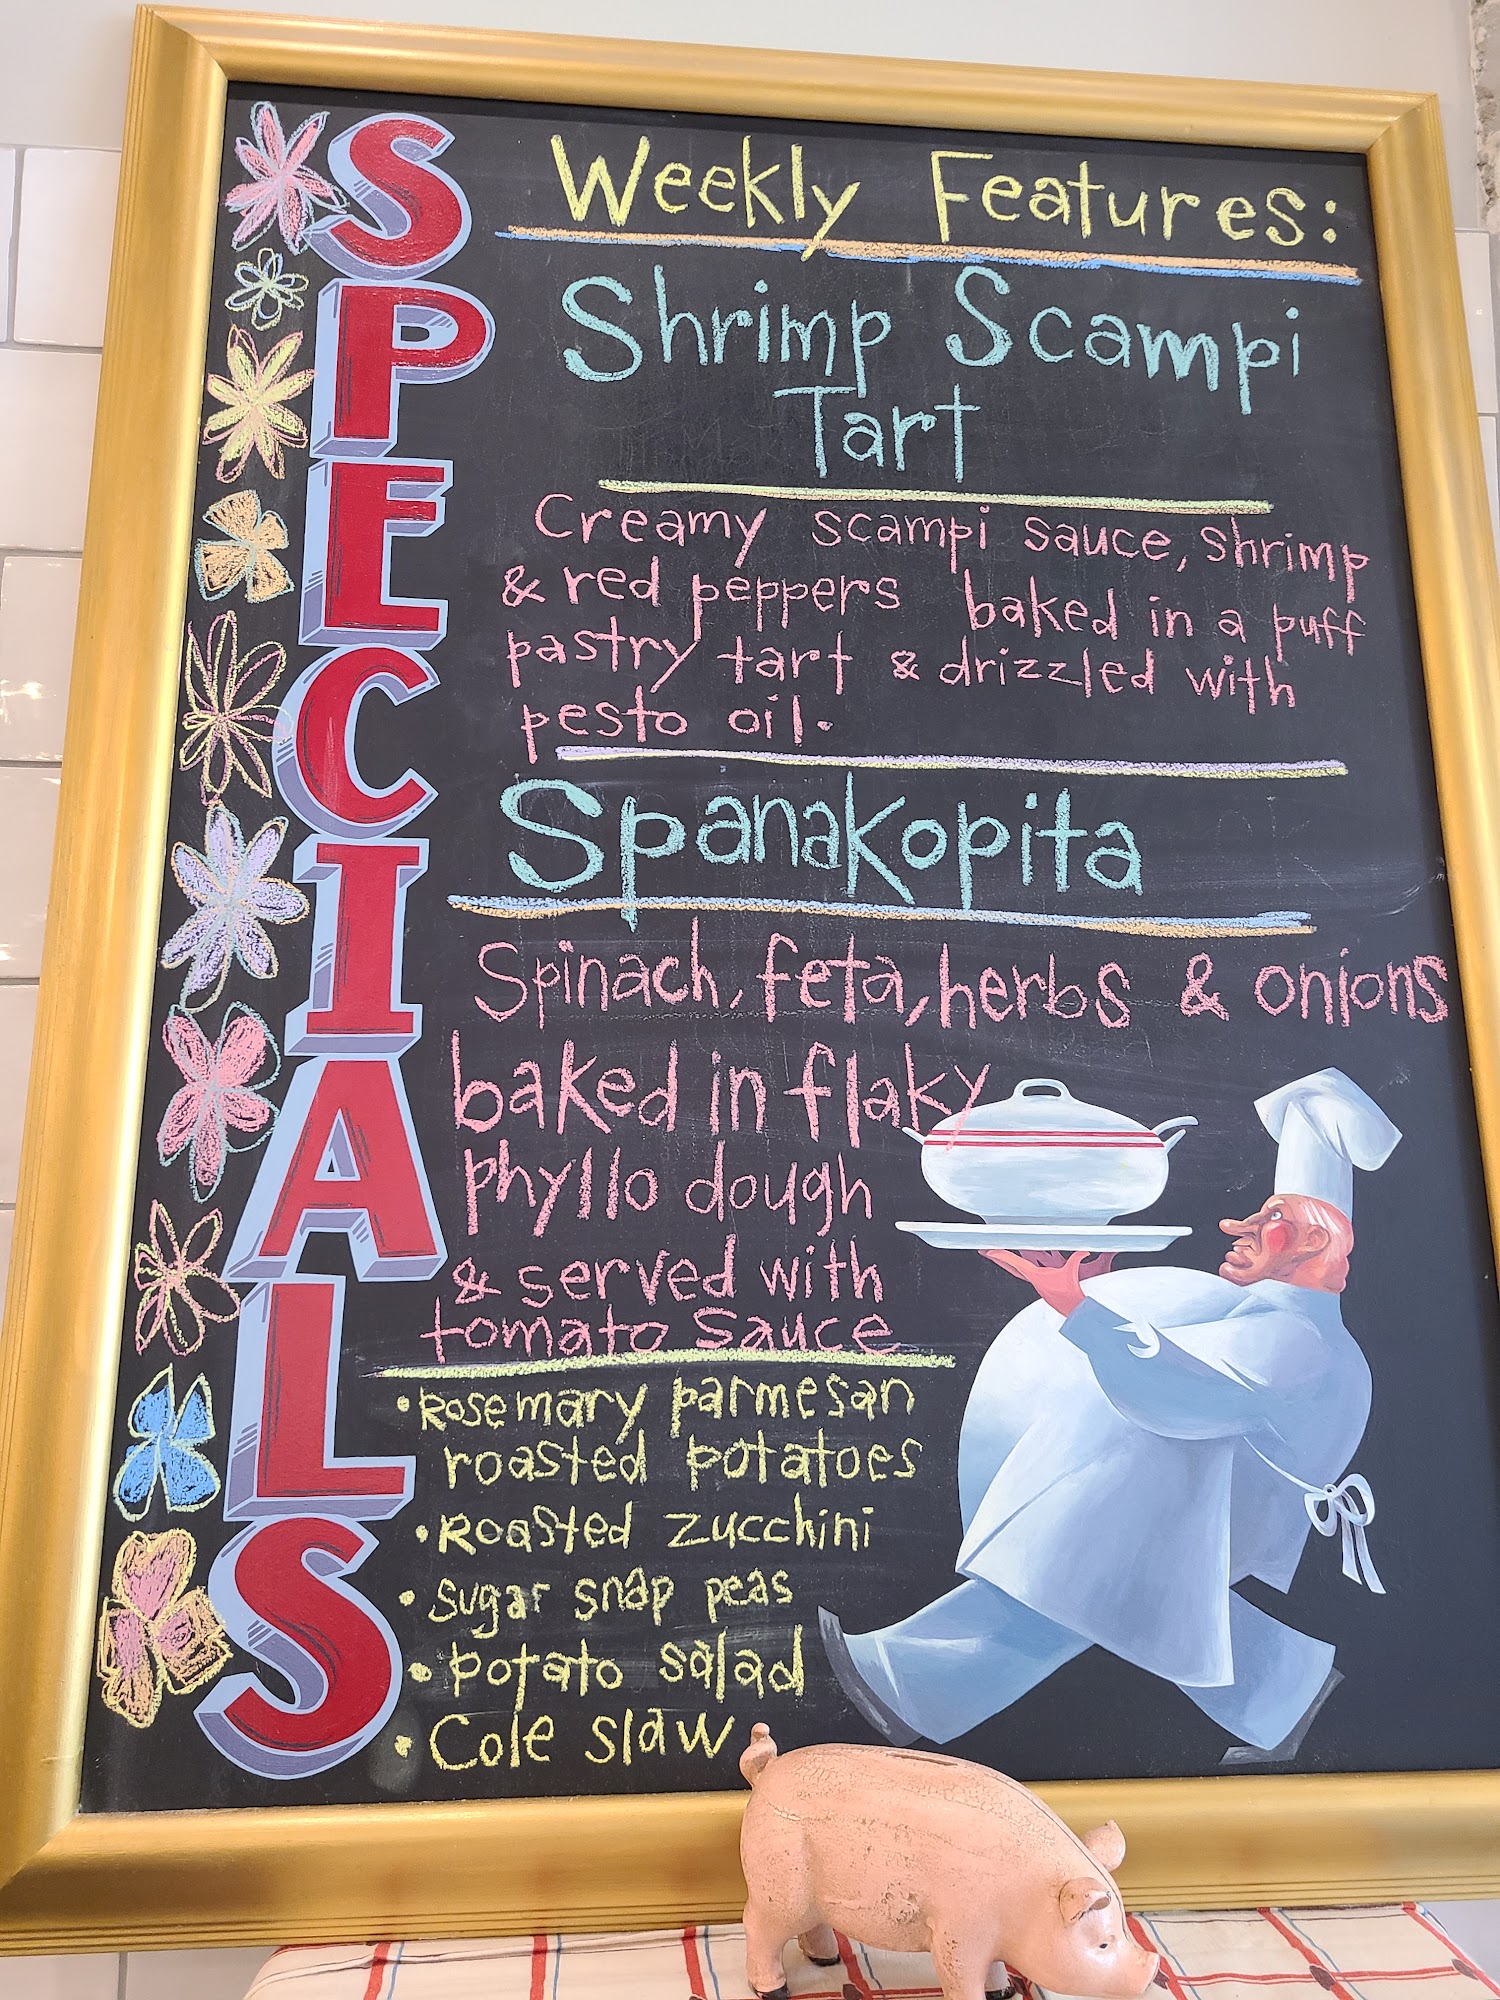 SPECIALS
Weekly Features:
Shrimp Scampi
Tart
Creamy scampi sauce, shrimp
& red peppers baked in a puff
pastry tart & drizzled with
pesto oil.
Spanakopita
Spinach, feta, herbs & onions
baked in flaky
phyllo dough
& served with
tomato sauce
• Rosemary parmesan
roasted potatoes
• Roasted zucchini
• sugar snap peas
• potato salad
• Cole slaw